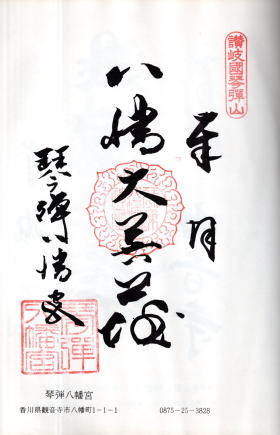 讃岐國琴彈山
奉拝
八幡大菩薩
琴弾八幡宮
琴弾八幡宮
琴弾八幡宮
香川県観音寺市八幡町1-1-1
0875-25-3828